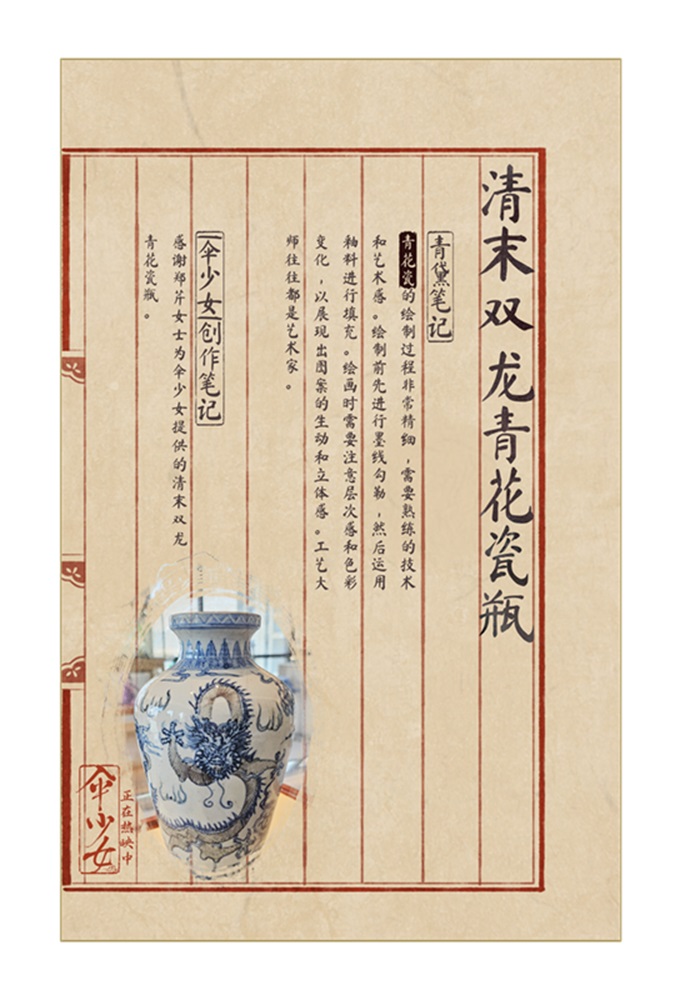 清末双龙青花瓷瓶
青黛笔记
青花瓷的绘制过程非常精细，需要熟练的技术
和艺术感。绘制前先进行墨线勾勒，然后运用
釉料进行填充。绘画时需要注意层次感和色彩
变化，以展现出图案的生动和立体感。工艺大
师往往都是艺术家。
伞少女创作笔记
感谢郑芹女士为伞少女提供的清末双龙
青花瓷瓶。
正在热映中
伞少女